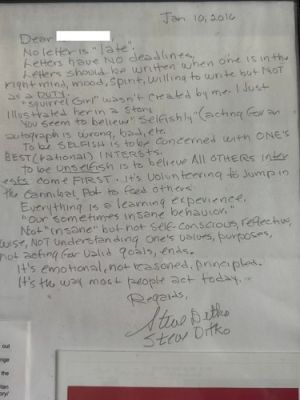 Jan. 10, 2016
Dear
No letter is "late".
Letters have NO deadlines.
Letters should be written when one is in the
right mind, mood, spirit, willing to write but NOT
as a DUTY.
"Squirrel Girl" wasn't created by me. I Just
Illustrated her in a story.
You seem to believe "selfishly" (acting for an
autograph is wrong, bad, etc.
To be SELFISH is to be concerned with ONE'S
BEST (rational) INTERESTS.
To be UNselfish is to believe All OTHERS inter
ests come FIRST. It's volunteering to Jump in
the cannibal Pot to feed others.
Everything is a learning experience.
"Our sometimes insane behavior."
Not "insane" but not self-conscious, reflective,
wise, NOT understanding one's values, purposes,
not acting for valid goals, ends.
It's emotional, not reasoned, principled.
It's the way most people act today.
Regards,
Steve Ditko
Steve Ditko
out
nge
the
lan
ory/